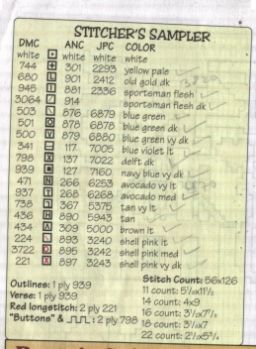 STITCHER'S SAMPLER
DMC ANC JPC COLOR
white white white white
744 301 2293 yellow pale
680 901 2412 old gold dk
945 881 2336 sportsman flesh
3064 914 sportsman flesh dk
503 876 6879 blue green
501 878 6878 blue green dk
500 879 6880 blue green vy dk
341 117 7005 blue violet lt
798 137 7022 delft dk
939 127 7160 navy blue vy dk
471 266 6253 avocado vy lt
937 268 6268 avocado med
738 367 5375 tan vy lt
436 890 5943 tan
434 309 5000 brown lt
224 893 3240 shell pink lt
3722 895 3242 shell pink med
221 897 3243 shell pink vy dk
Outlines: 1 ply 939
Verse: 1 ply 939
Red longstitch: 2 ply 221
"Buttons" & : 2 ply 798
Stitch Count: 56x126
11 count: 5⅛x11½
14 count: 4x9
16 count: 3½x7⅞
18 count: 3⅛x7
22 count: 2½x5¾